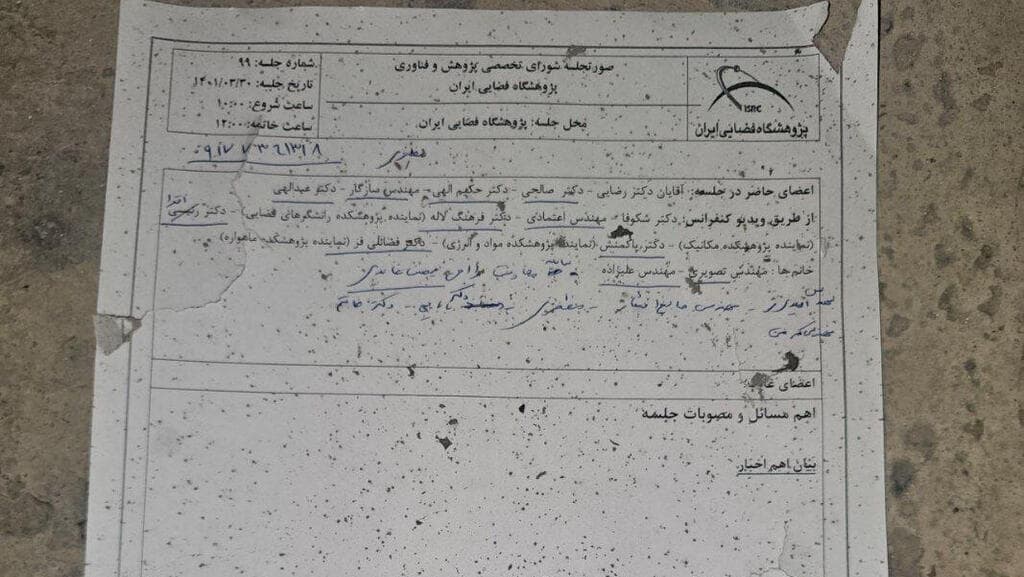 صورتجلسه شورای تخصصی پژوهش و فناوری
پژوهشگاه فضایی ایران
محل جلسه: پژوهشگاه فضایی ایران
ISRC
پژوهشگاه فضایی ایران
شماره جلسه: ۹۹
تاریخ جلسه: ۱۴۰۱/۰۳/۳۰
ساعت شروع: ۱۰:۰۰
ساعت خاتمه: ۱۲:۰۰
۰۹۱۷۷۳۶۱۳۱۸
اعضای حاضر در جلسه: آقایان دکتر رضایی - دکتر صالحی - دکتر حکیم الهی - مهندس سازگار - دکتر عبدالهی
از طریق ویدیو کنفرانس: دکتر شکوفا - مهندس اعتمادی - دکتر فرهنگ لاله (نماینده پژوهشکده رانشگرهای فضایی) - دکتر
(نماینده پژوهشکده مکانیک) - دکتر پاکمنش (نماینده پژوهشکده مواد و انرژی) - دکتر فضائلی فر (نماینده پژوهشکده ماهواره)
خانم ها: مهندس تصویری - مهندس علیزاده
مهندس - دکتر خانم
اعضای
اهم مسائل و مصوبات جلسه
بیان اهم اخبار